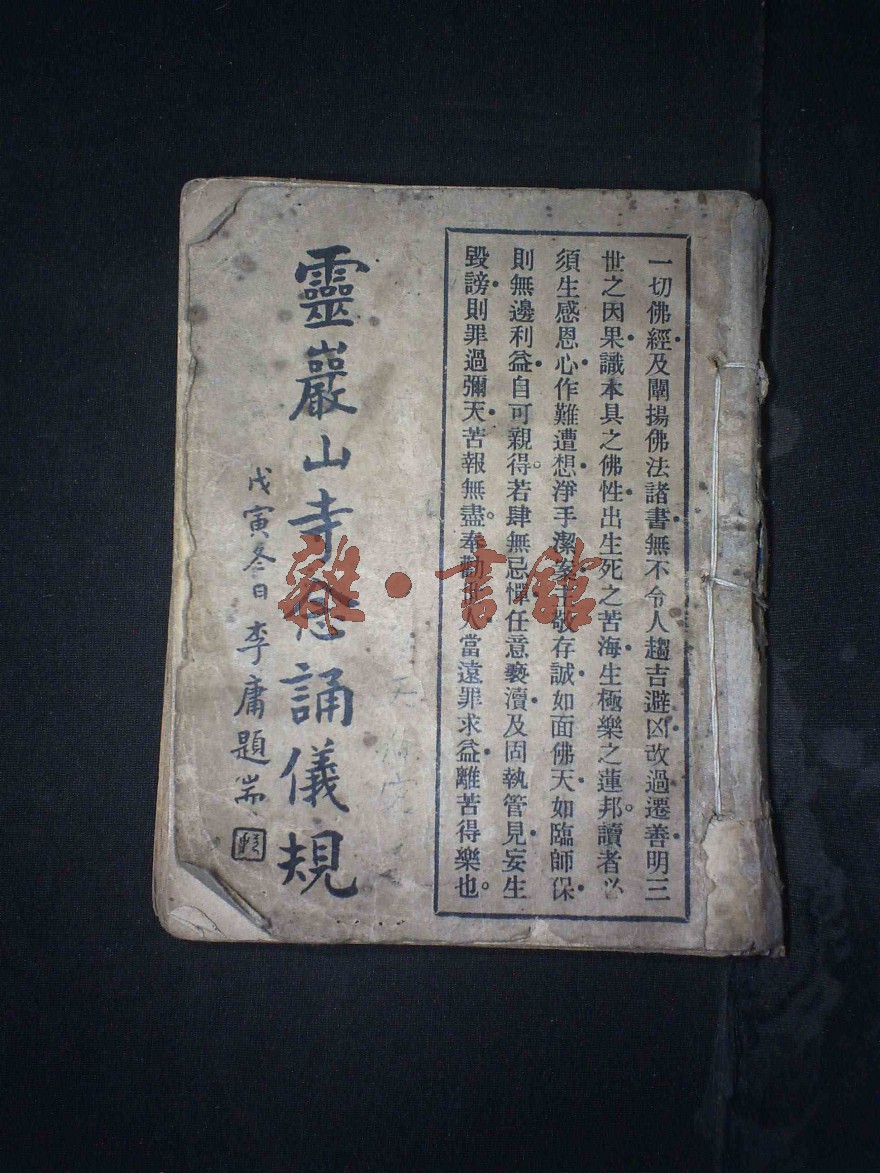 一切佛經及闡揚佛法諸書無不令人趨吉避凶改過遷善明三
世之因果識本具之佛性出生死之苦海生極樂之蓮邦。讀者必
須生感恩心作難遭想淨手潔案主敬存誠如面佛天如臨師保
則無邊利益自可親得。若肆無忌憚任意褻瀆及固執管見妄生
毀謗則罪過彌天苦報無盡。奉勸世人當遠罪求益離苦得樂也。
靈巖山寺念誦儀規
戊寅冬日 李庸題耑
雜·書館